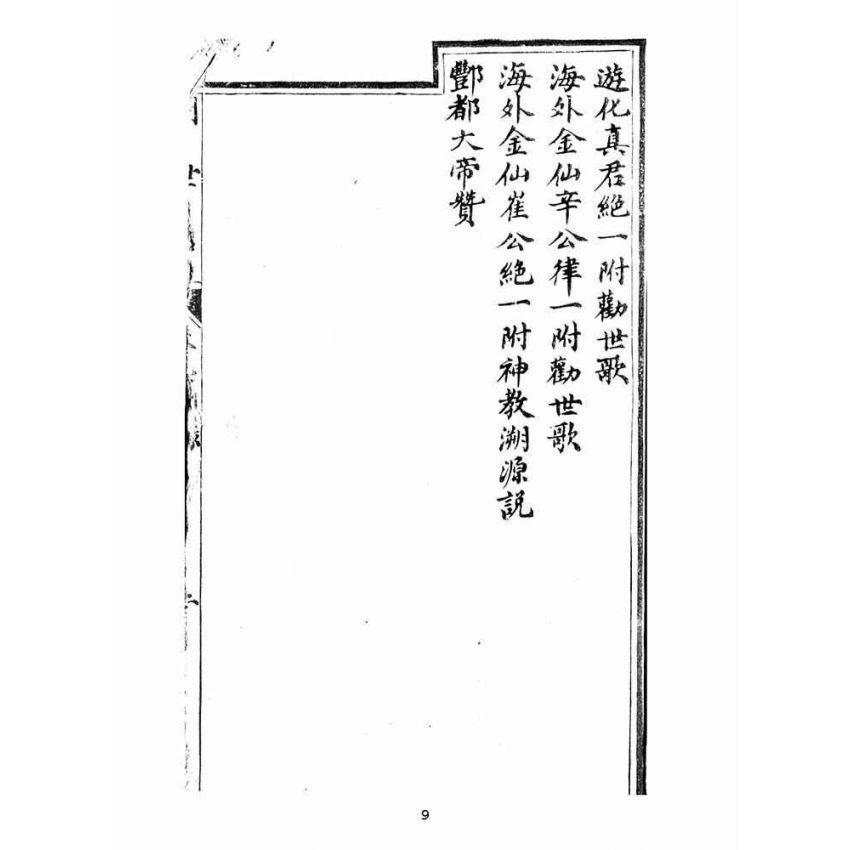 遊化真君絕一附勸世歌
海外金仙辛公律一附勸世歌
海外金仙崔公絕一附神教溯源説
酆都大帝贊
9